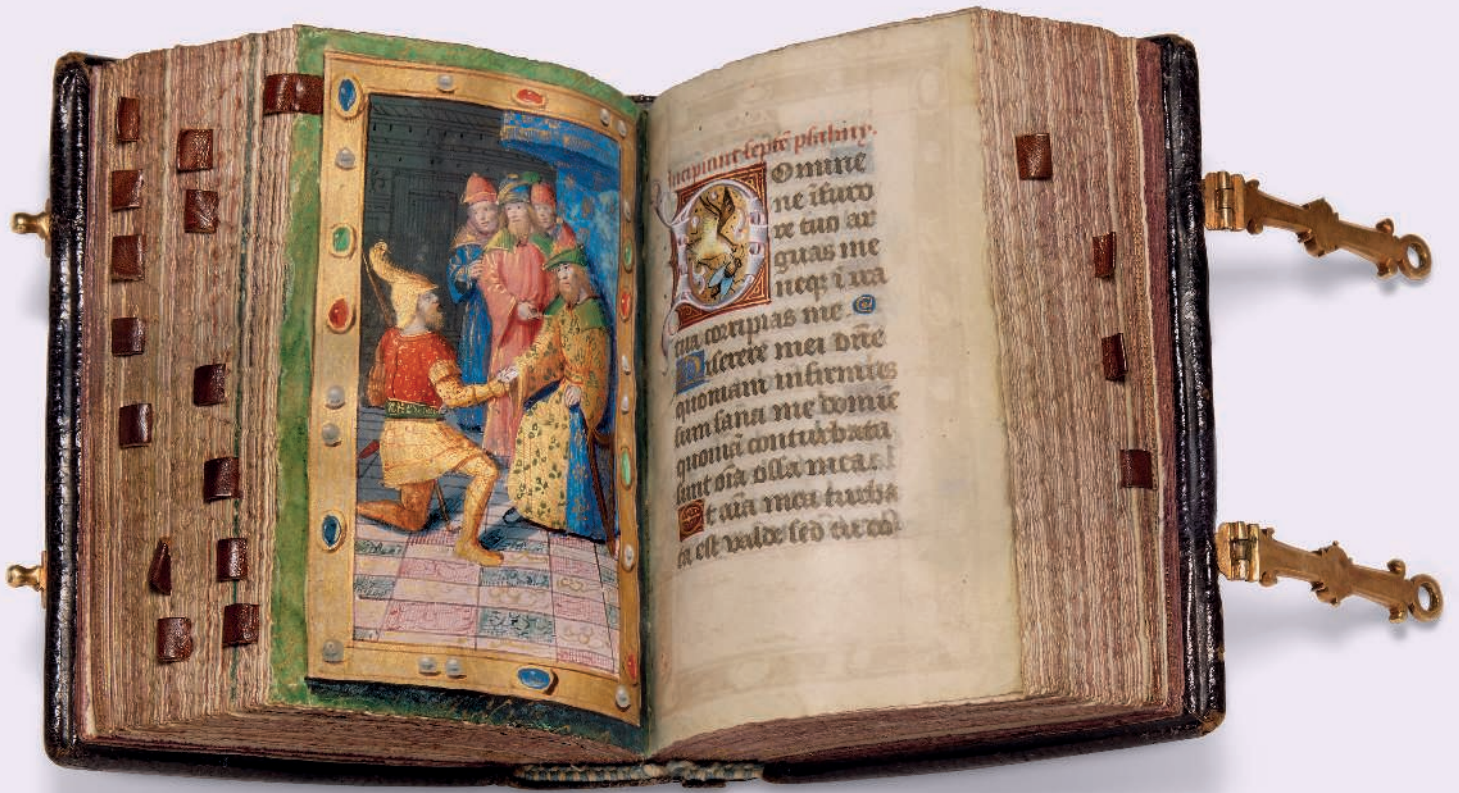 Incipiunt septē
Domine
ne ī furo
re tuo ar
guas me
neqȝ ī ira
tua corripias me.
Miserere mei dn̄e
quoniam infirmus
sum sana me domīe
quoniā conturbata
sunt oīa ossa mea.
Et aīa mea turba
ta est valde sed tu do